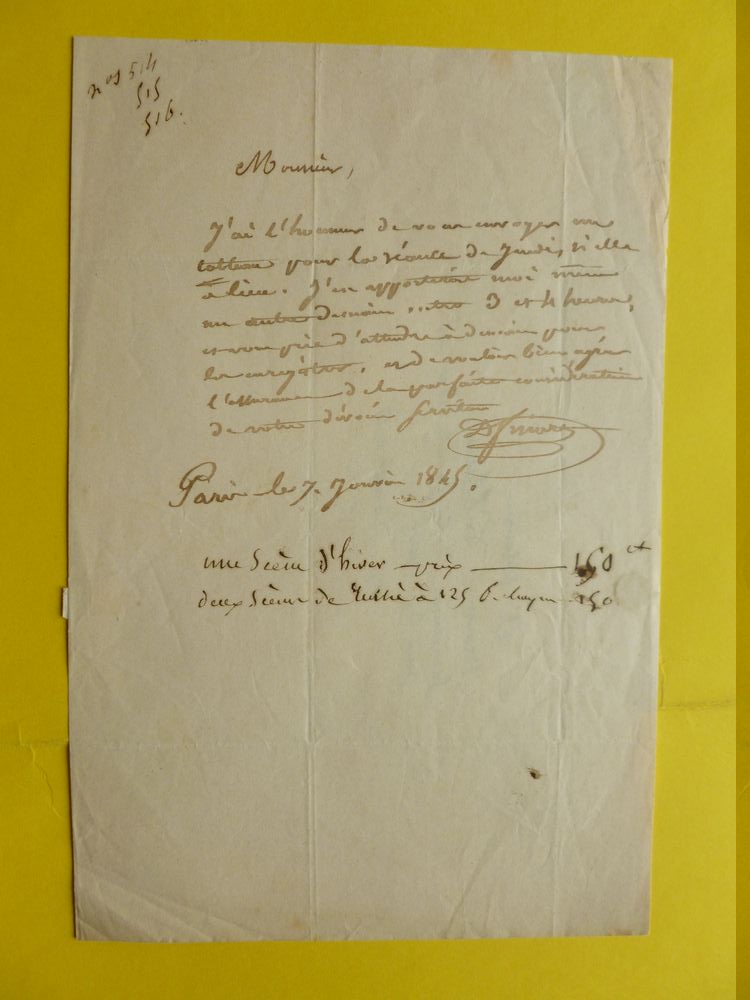 nos 514
515
516.
Monsieur,
J'ai l'honneur de vous envoyer un
tableau pour la séance de Jeudi, si elle
à lieu. J'en apporterai moi même
un autre demain entre 3 et 4 heures,
et vous prie d'attendre à demain pour
les enregistrer, et de vouloir bien agréer
l'assurance de la parfaite considération
de votre dévoué serviteur
Paris le 7. Janvier 1845.
une Scène d'hiver prix 150
deux Scènes de Russie à 125 f. chaque 250